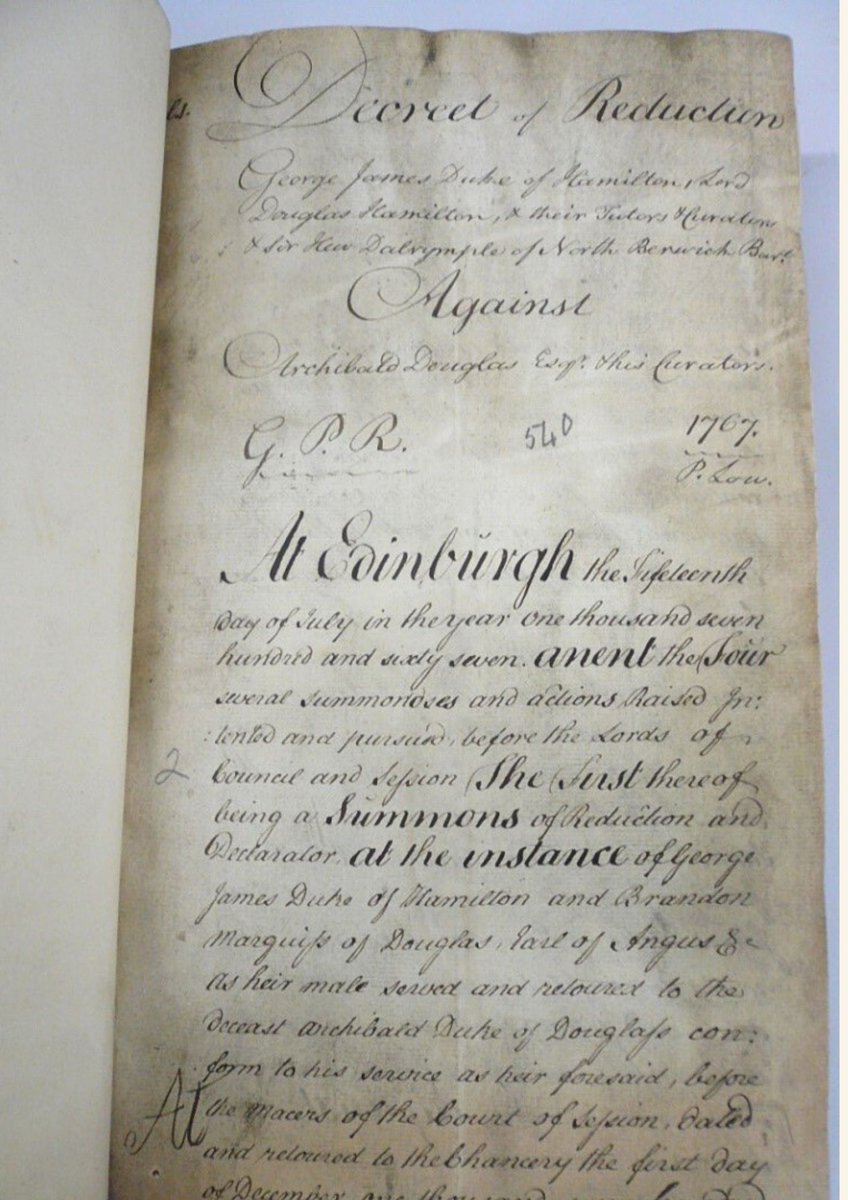 ls.
Decreet of Reduction
George James Duke of Hamilton, Lord
Douglas Hamilton, & their Tutors & Curators
& Sir Hew Dalrymple of North Berwick Bart.
Against
Archibald Douglas Esqr. & his Curators.
G. P. R. 540 1767.
P. Lou.
At Edinburgh the Fifteenth
day of July in the year one thousand seven
hundred and sixty seven. anent the Four
several summondses and actions Raised In:
:tented and pursued, before the Lords of
2
Council and Session The First thereof
being a Summons of Reduction and
Declarator, at the instance of George
James Duke of Hamilton and Brandon
Marquiss of Douglas, Earl of Angus &c
As heir male served and retoured to the
deceast Archibald Duke of Douglass con:
:form to his service as heir foresaid, before
At
the Macers of the Court of Session, dated
and retoured to the Chancery the first day
of December one